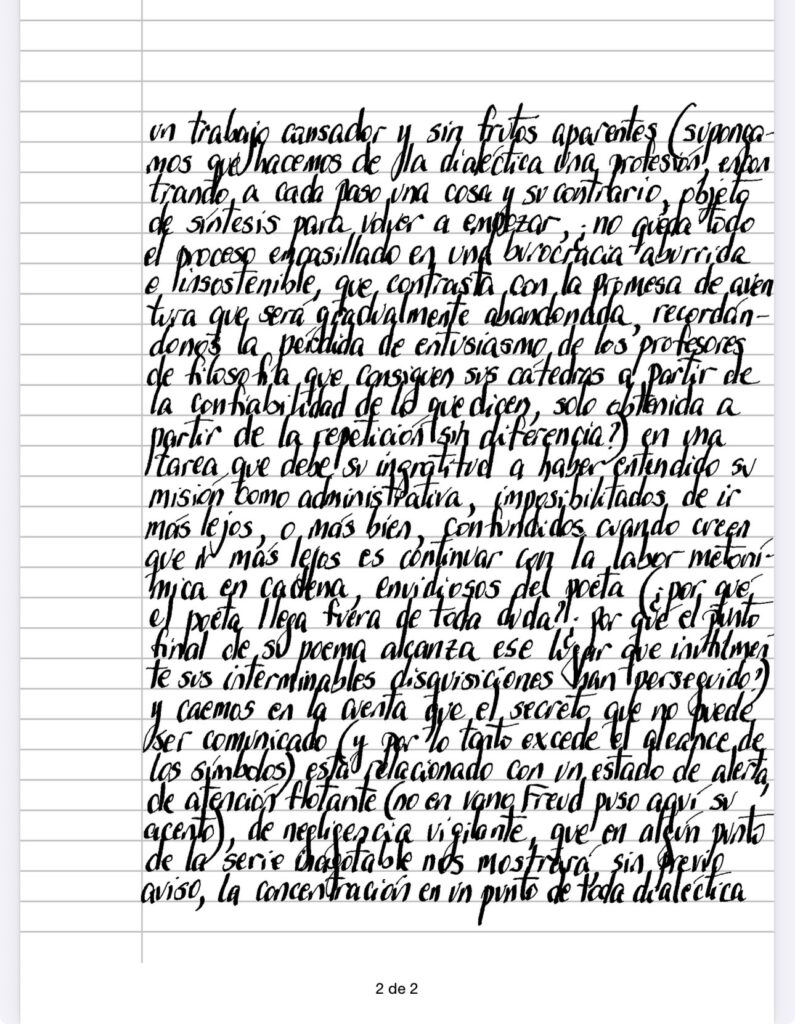 un trabajo cansador y sin frutos aparentes (suponga-
mos que hacemos de la dialéctica una profesión, encon
trando a cada paso una cosa y su contrario, objeto
de síntesis para volver a empezar, ¿no queda todo
el proceso encasillado en una burocracia aburrida
e insostenible, que contrasta con la promesa de aven
tura que será gradualmente abandonada, recordán-
donos la pérdida de entusiasmo de los profesores
de filosofía que consiguen sus cátedras a partir de
la confiabilidad de lo que dicen, solo obtenida a
partir de la repetición sin diferencia?) en una
tarea que debe su ingratitud a haber entendido su
misión como administrativa, imposibilitados de ir
más lejos, o más bien, confundidos cuando creen
que ir más lejos es continuar con la labor metoní-
mica en cadena, envidiosos del poeta (¿por qué
el poeta llega fuera de toda duda?¿por qué el punto
final de su poema alcanza ese lugar que inútilmen
te sus interminables disquisiciones han perseguido?)
y caemos en la cuenta que el secreto que no puede
ser comunicado (y por lo tanto excede el alcance de
los símbolos) está relacionado con un estado de alerta,
de atención flotante (no en vano Freud puso aquí su
acento), de negligencia vigilante, que en algún punto
de la serie inagotable nos mostrará, sin previo
aviso, la concentración en un punto de toda dialéctica
2 de 2